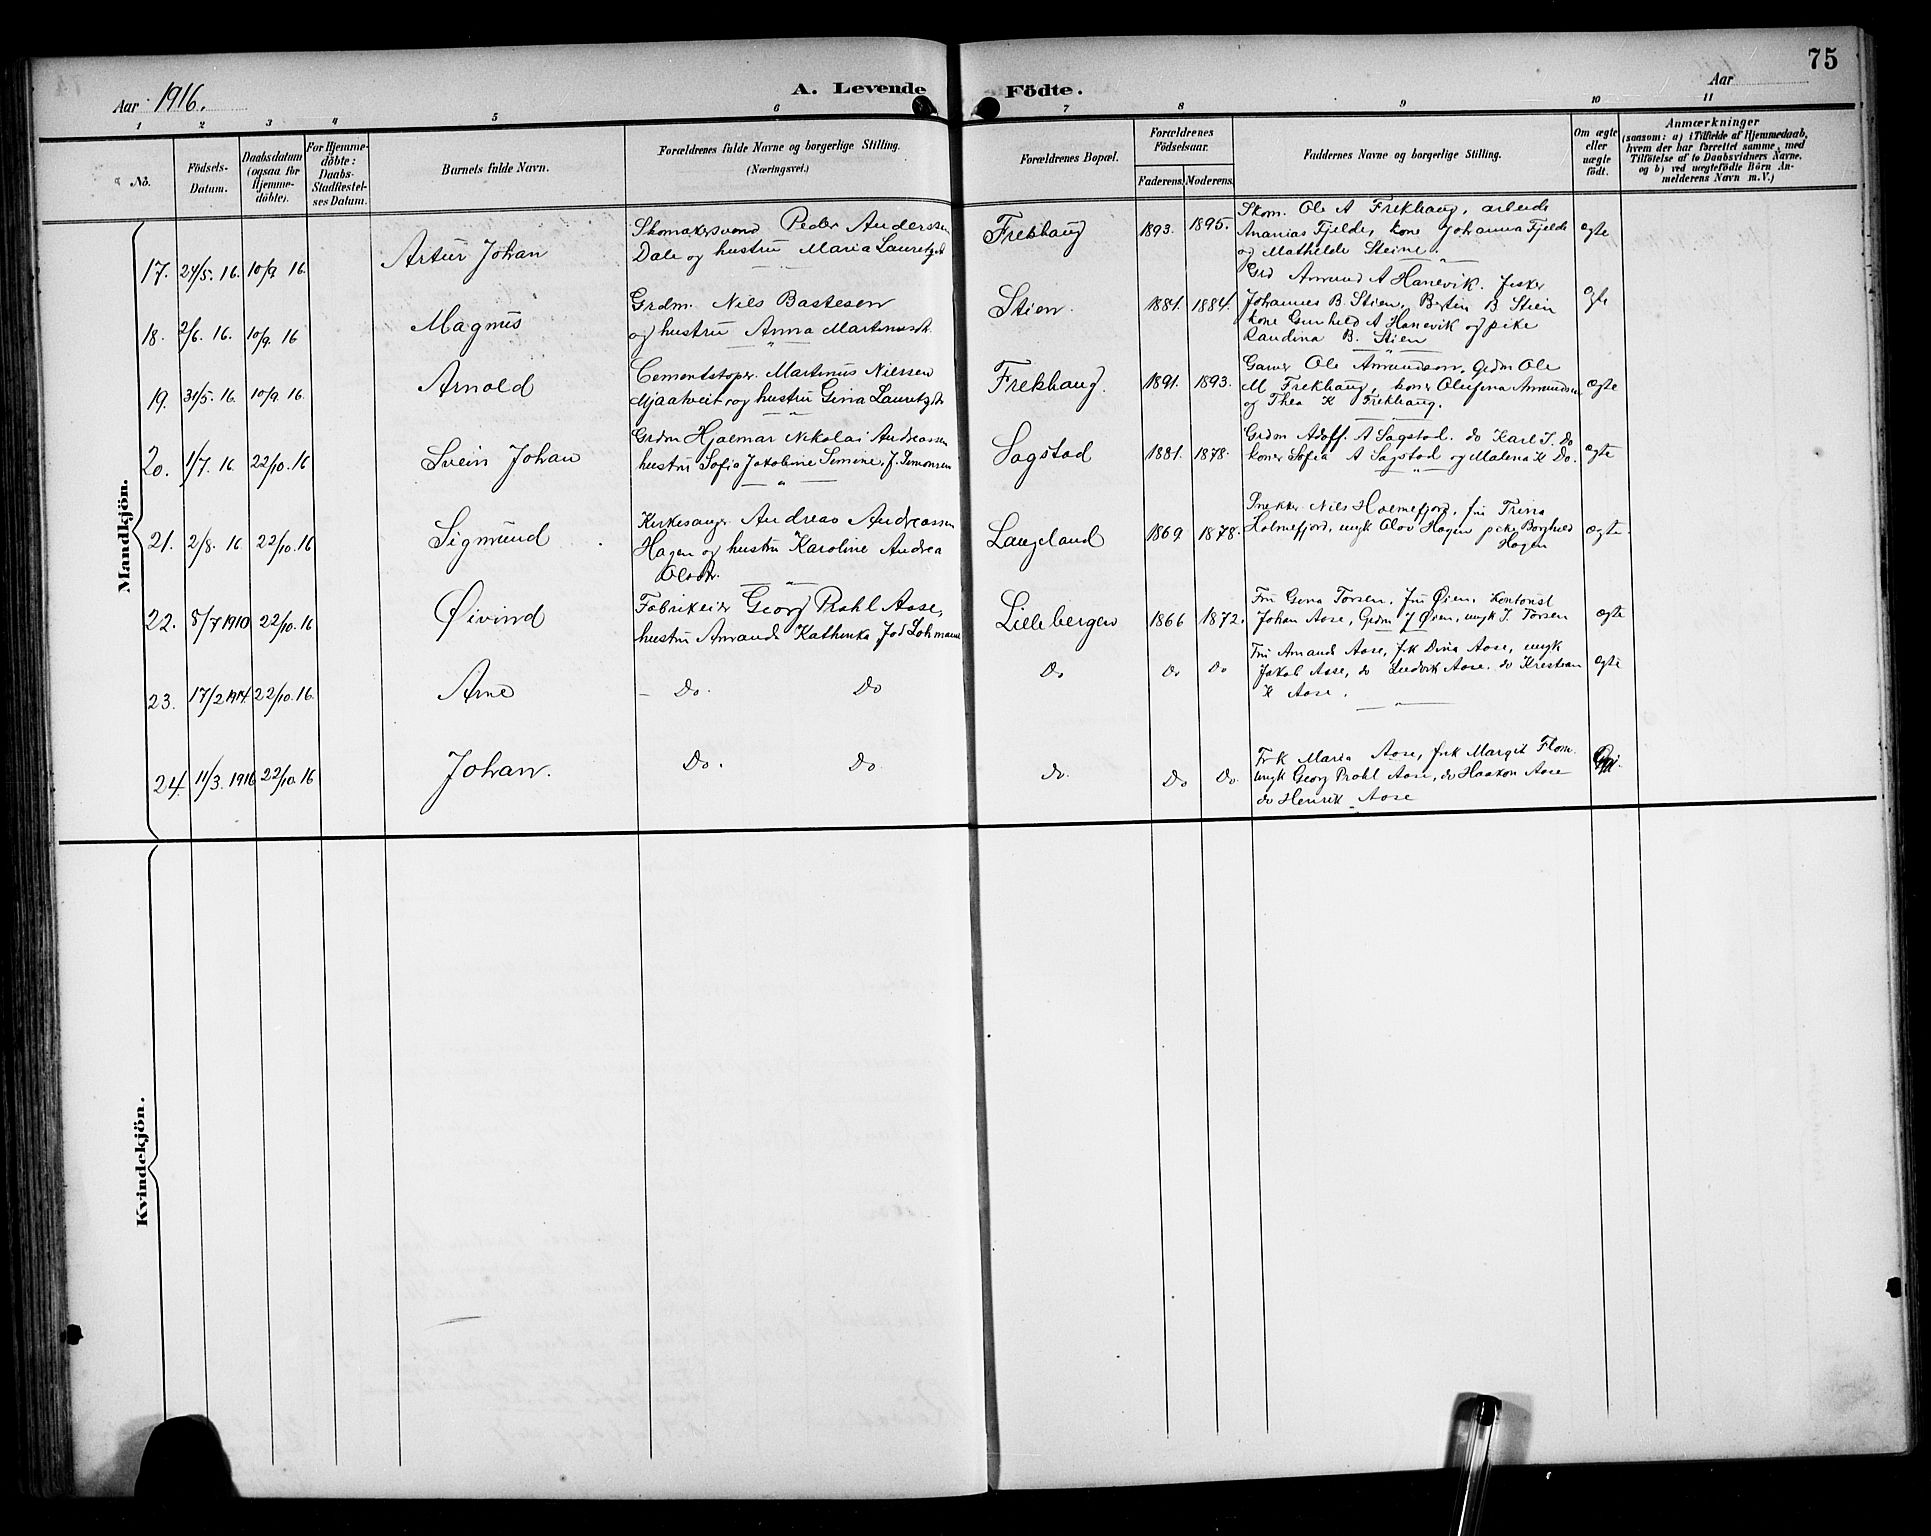 75
Aar 1916. A. Levende Födte. Aar
1 2 3 4 5 6 7 8 9 10 11
No.
Födsels-Datum.
Daabsdatum (ogsaa for Hjemmedöbte).
For Hjemmedöbte: Daabs-Stadfæstelses Datum.
Barnets fulde Navn.
Forældrenes fulde Navne og borgerlige Stilling.
(Næringsvei.)
Forældrenes Bopæl.
Forældrenes Födselsaar.
Faderens. Moderens.
Faddernes Navne og borgerlige Stilling.
Om ægte eller uægte födt.
Anmærkninger
(saasom: a) i Tilfælde af Hjemmedaab,
hvem der har forrettet samme, med
Tilföielse af to Daabsvidners Navne,
og b) ved uægtefödte Börn An-
melderens Navn m. V.)
Mandkjön.
17. 24/5. 16. 10/9 16 Artur Johan
Skomakersvend Peder Anderssen
Dale og hustru Maria Lauretzdt
Frekhaug 1893. 1895.
Skom. Ole A Frekhaug, arbeide
Ananias Fjelde, kone Johanna Fjelde
og Mathilde Steine.
ægte
18. 2/6. 16. 10/9. 16 Magnus
Grdm. Nils Bastesen
og hustru Anna Martinusdt.
Stien. 1881. 1884.
Grd Amund A Hanevik. Fisker
Johannes B. Stien, B. Stien
kone Gunhild A Hanevik og pike
Randina B. Stien
ægte
19. 31/5. 16. 10/9. 16 Arnold
Cementstøper. Martinus Nilssen
Mjaatveit og hustru Gina Lauretzdt.
Frekhaug. 1891. 1893.
Garver Ole Amundsen, Grdm Ole
M. Frekhaug, koner Olufina Amundsen
og Thea K Frekhaug.
ægte
20. 1/7. 16. 22/10. 16 Svein Johan
Grdm Hjalmar Nikolai Andreassen
hustru Sofie Jakobine Simine, J. Simonsen
Sagstad 1881. 1878.
Grdm Adolf. A Sagstad. do Karl J. Do
koner Sofia A Sagstad og Malena K Do.
ægte
21. 2/8. 16 22/10. 16 Sigmund
Kirkesanger Andreas Andreassen
Hagen og hustru Karoline Andrea
Olsdt.
Langeland 1869 1878.
Snekker Nils Holmefjord, fru Trina
Holmefjord, ungk Olov Hagen pike Borghild
Hagen
ægte.
22. 5/7 1910 22/10. 16 Øivind
Fabrikeier Georg Prahl Aase,
hustru Amanda Kathinka fød Lohmann
Lille bergen 1866 1872.
Fru Gina Torsen, fru Øien, Kontorist
Johan Aase, Grdm J Øien, ungk J. Torsen
ægte
23. 17/2 1914. 22/10. 16. Arne
Do. Do Do Do Do
Fru Amanda Aase, frk Dina Aase, ungk
Jakob Aase, do Ludvik Aase. do Kristian
K Aase.
ægte
24. 11/3. 1916 22/10. 16 Johan.
Do. Do do. Do Do.
Frk Maria Aase, frk Margit Flom.
ungk Georg Prahl Aase, do Haakon Aase
do Henrik Aase
Kvindekjön.